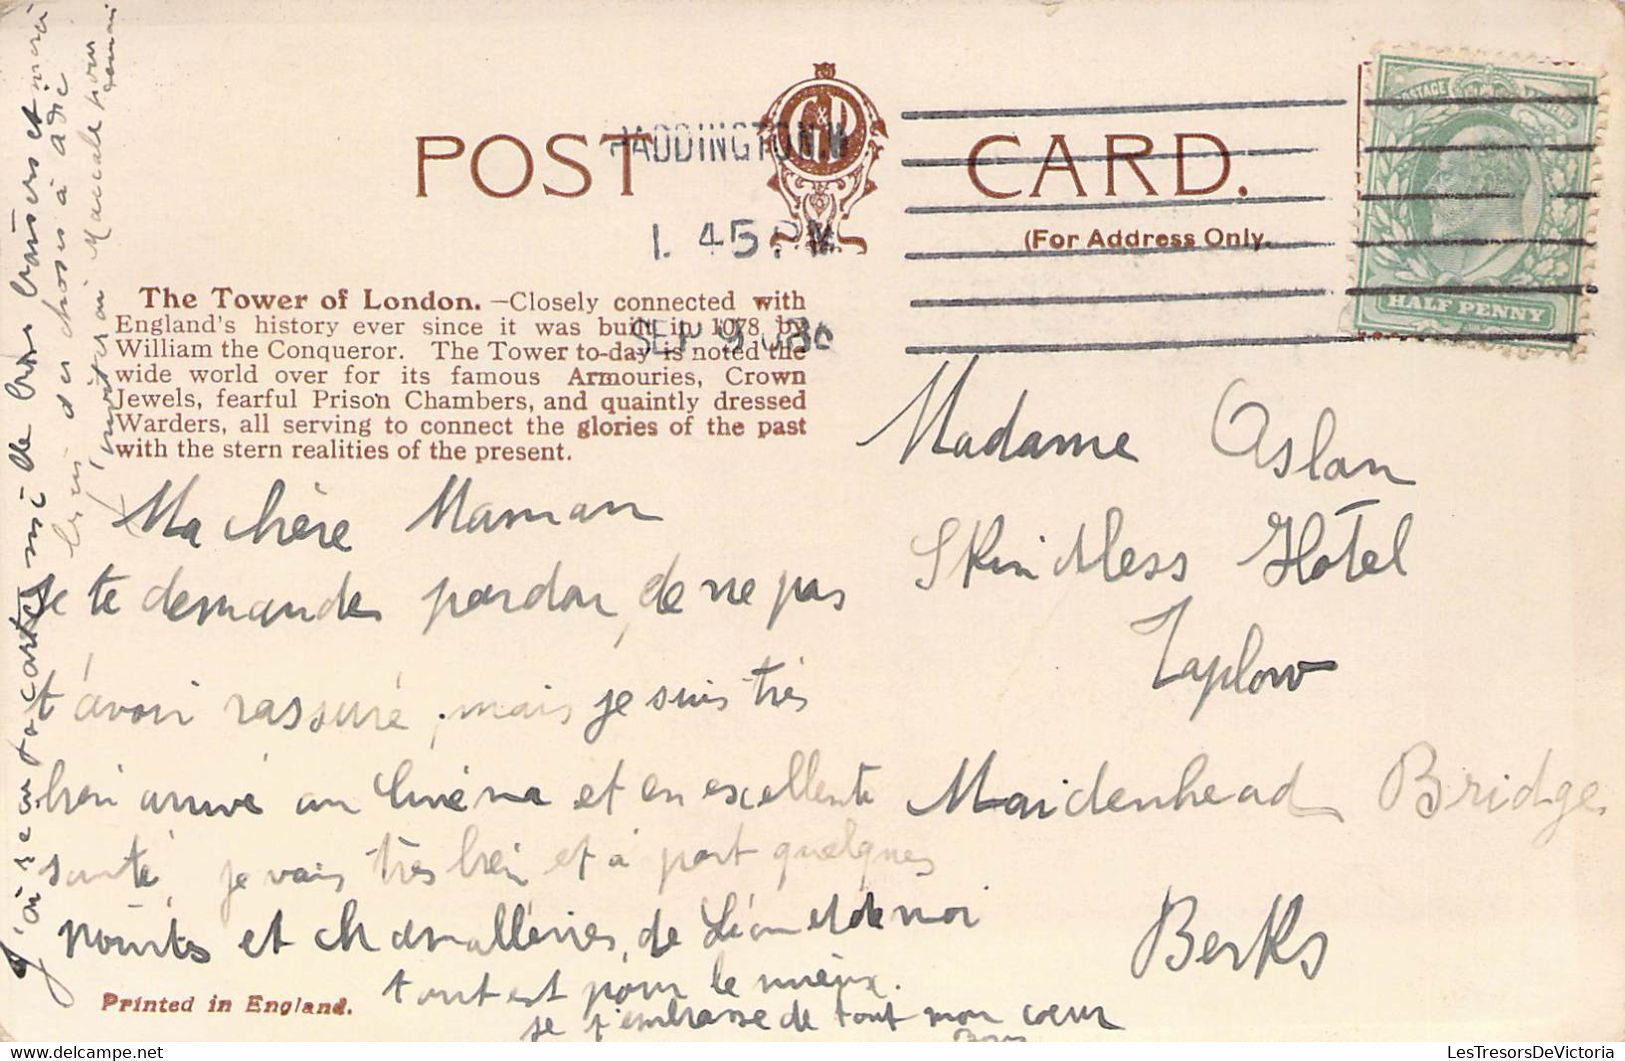 POST CARD.
G&D
(For Address Only.
PADDINGTON.W
1. 45 PM
SEP 9
POSTAGE
HALF PENNY
The Tower of London. —Closely connected with
England's history ever since it was built in 1078 by
William the Conqueror. The Tower to-day is noted the
wide world over for its famous Armouries, Crown
Jewels, fearful Prison Chambers, and quaintly dressed
Warders, all serving to connect the glories of the past
with the stern realities of the present.
Ma chère Maman
Je te demande pardon, de ne pas
t'avoir rassuré, mais je suis très
bien arrivé au Cinéma et en excellente
santé, je vais très bien et à part quelques
pointes et chamalleries, de Léon et de moi
tout est pour le mieux.
je t'embrasse de tout mon coeur
Madame Aslan
Skindless Hôtel
Taplow
Maidenhead Bridge
Berks
J'ai reçu ta carte, mil de bon baisers et merci
des choses à
Printed in England.
LesTresorsDeVictoria.com